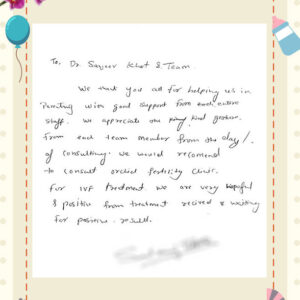 To, Dr. Sanjeev Khot & Team.
We thank you all for helping us in
Parenting with good support from each entire
staff. We appreciate the kind gesture
from each team member from the day 1.
of consulting. we would recomend
to consult orchid fertility clinic.
For IVF treatment. we are very hopeful
& positive from treatment recived & waiting
for positive result.